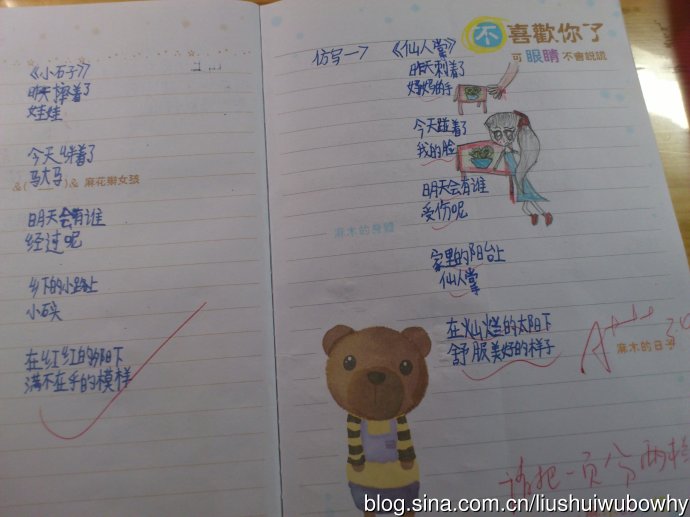 《小石子》
昨天摔着了
娃娃
今天绊着了
马大马
&( )& 麻花辮女孩
明天会有谁
经过呢
乡下的小路上
小石头
在红红的阳下
满不在乎的模样
不喜歡你了
可 眼睛 不會說謊
仿写一> 《仙人掌》
昨天刺着了
妈妈的手
今天踫着了
我的脸
明天会有谁
麻木的身體
受伤呢
家里的阳台上
仙人掌
在灿烂的太阳下
舒服美好的样子
麻木的日子
请把一页分两
blog.sina.com.cn/liushuiwubowhy